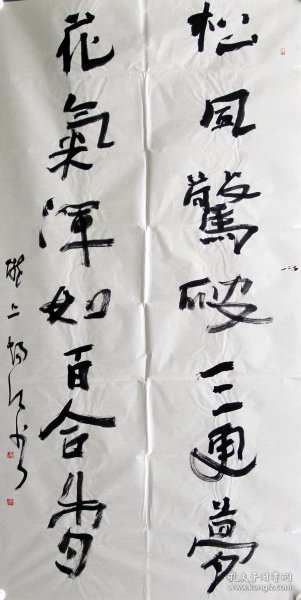 松风驚破三更夢
花氣渾如百合香
孔夫子旧书网
www.kongfz.com